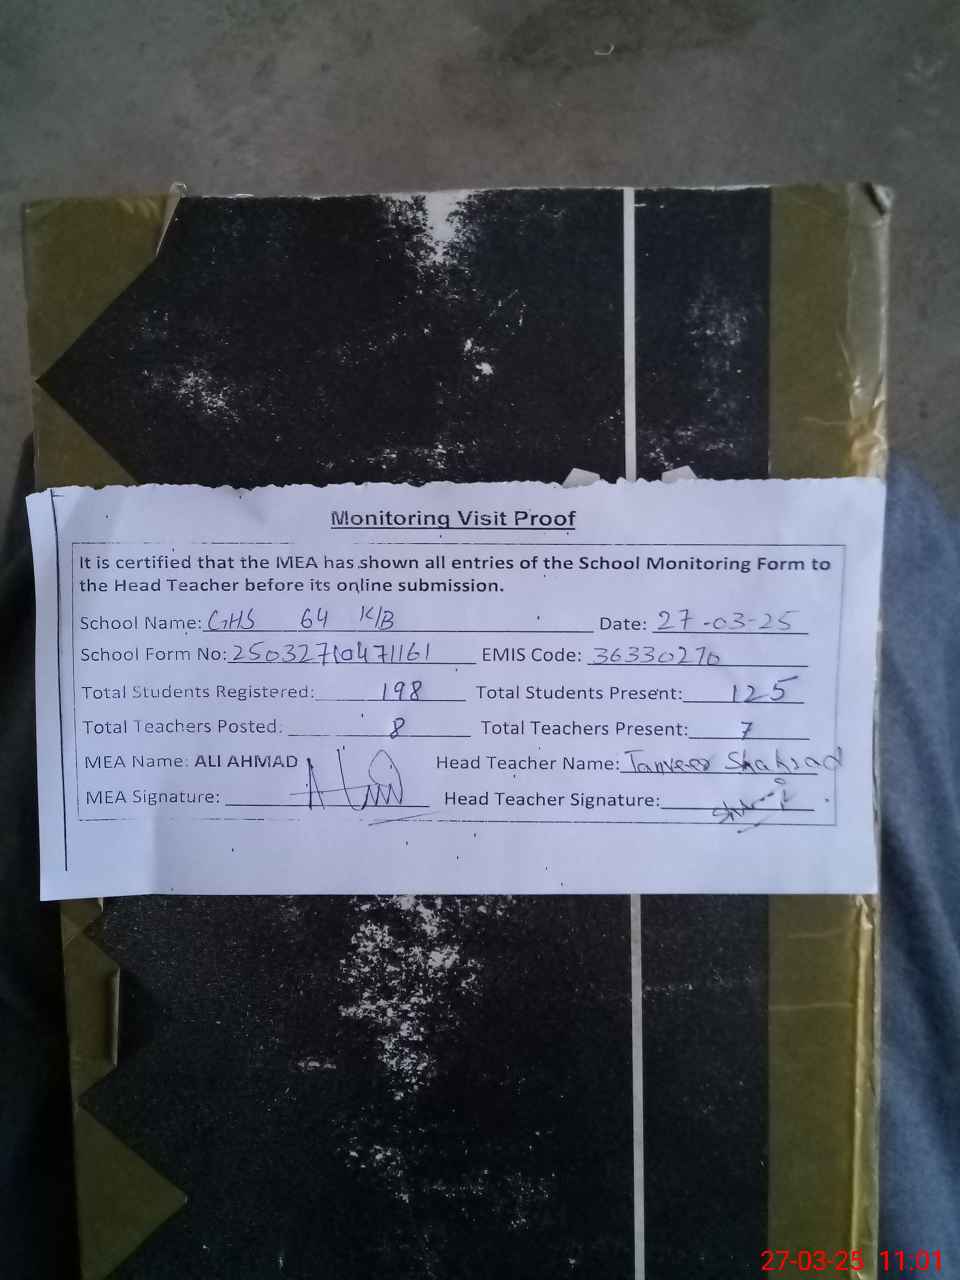 Monitoring Visit Proof
It is certified that the MEA has shown all entries of the School Monitoring Form to
the Head Teacher before its online submission.
School Name: GHS 64 K/B Date: 27-03-25
School Form No: 25032710471161 EMIS Code: 36330270
Total Students Registered: 198 Total Students Present: 125
Total Teachers Posted: 8 Total Teachers Present: 7
MEA Name: ALI AHMAD Head Teacher Name: Tanveer Shahzad
MEA Signature: Head Teacher Signature:
27-03-25 11:01